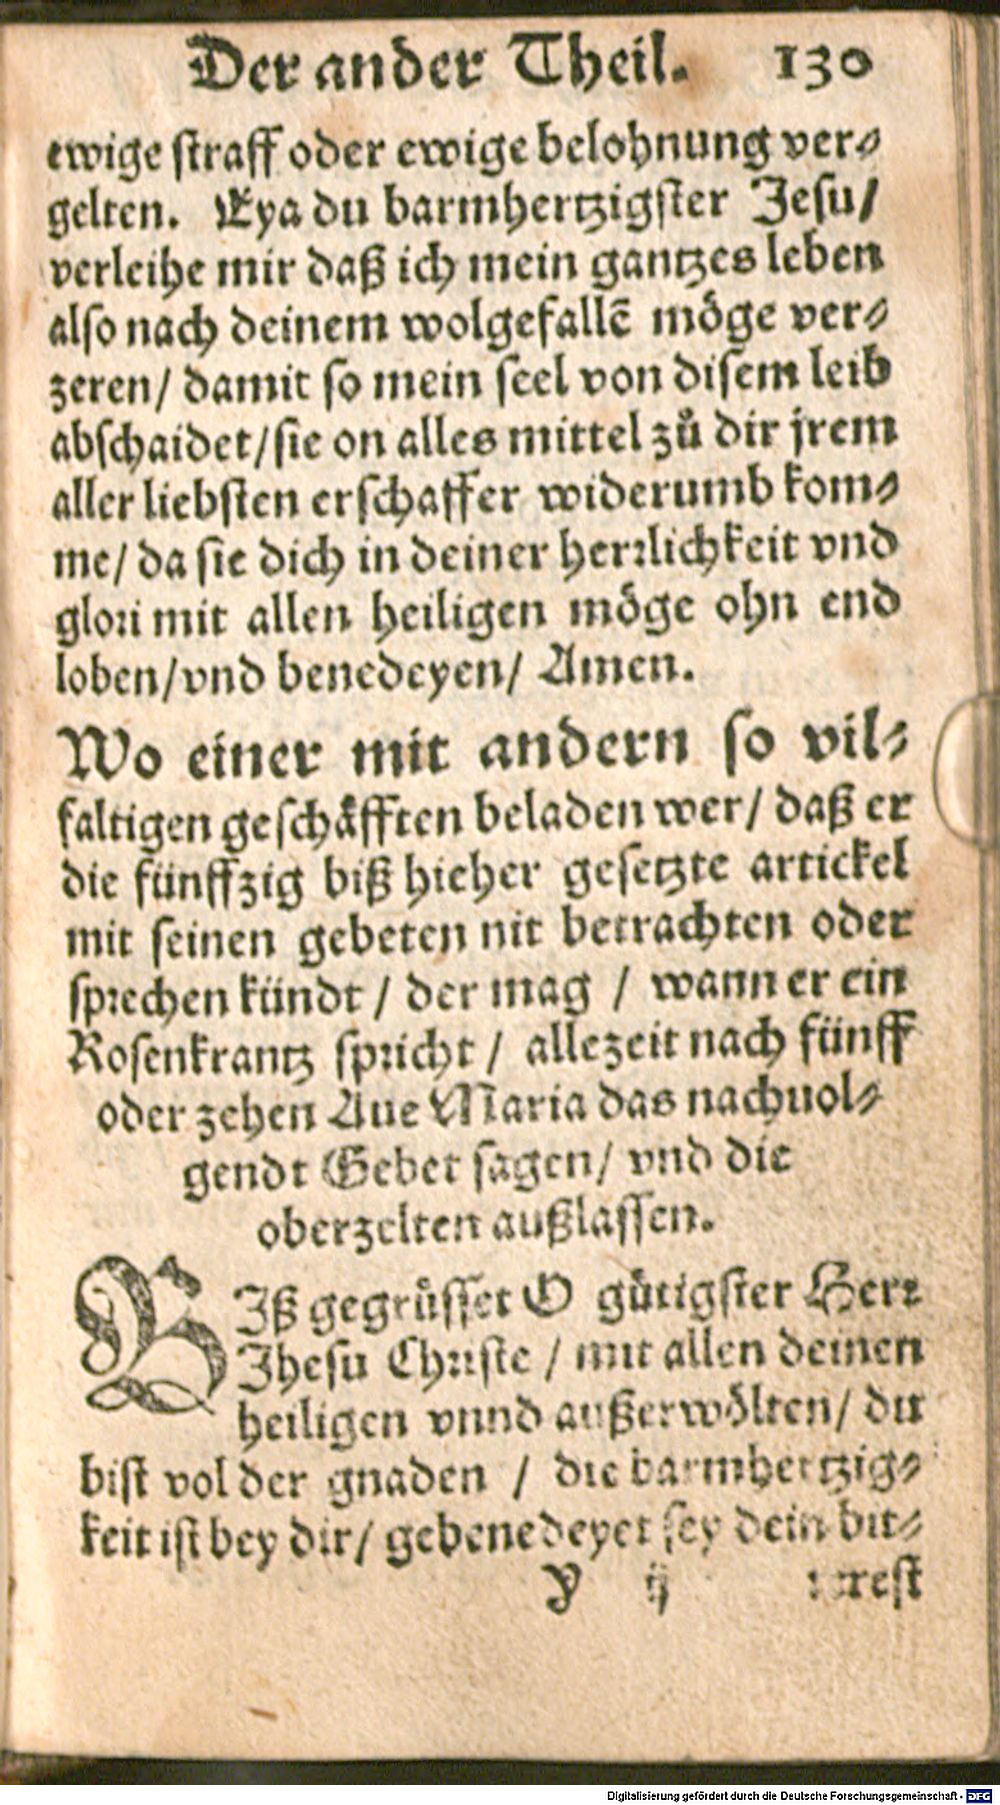 Der ander Theil. 130
ewige straff oder ewige belohnung ver⸗
gelten. Eya du barmhertzigster Jesu/
verleihe mir daß ich mein gantzes leben
also nach deinem wolgefallẽ möge ver⸗
zeren/ damit so mein seel von disem leib
abschaidet/sie on alles mittel zuͦ dir jrem
aller liebsten erschaffer widerumb kom⸗
me/ da sie dich in deiner herꝛlichkeit vnd
gloꝛi mit allen heiligen möge ohn end
loben/vnd benedeyen/ Amen.
Wo einer mit andern so vil⸗
faltigen geschäfften beladen wer/ daß er
die fünffzig biß hieher gesetzte artickel
mit seinen gebeten nit betrachten oder
spꝛechen kündt / der mag / wann er ein
Rosenkrantz spꝛicht / allezeit nach fünff
oder zehen Aue Maria das nachuol⸗
gendt Gebet sagen/ vnd die
oberzelten außlassen.
BIß gegrüsset O gütigster Herꝛ
Jhesu Chꝛiste / mit allen deinen
heiligen vnnd außerwölten/ du
bist vol der gnaden / die barmhertzig⸗
keit ist bey dir/ gebenedeyet sey dein bit⸗
Y ij terest
Digitalisierung gefördert durch die Deutsche Forschungsgemeinschaft - DFG